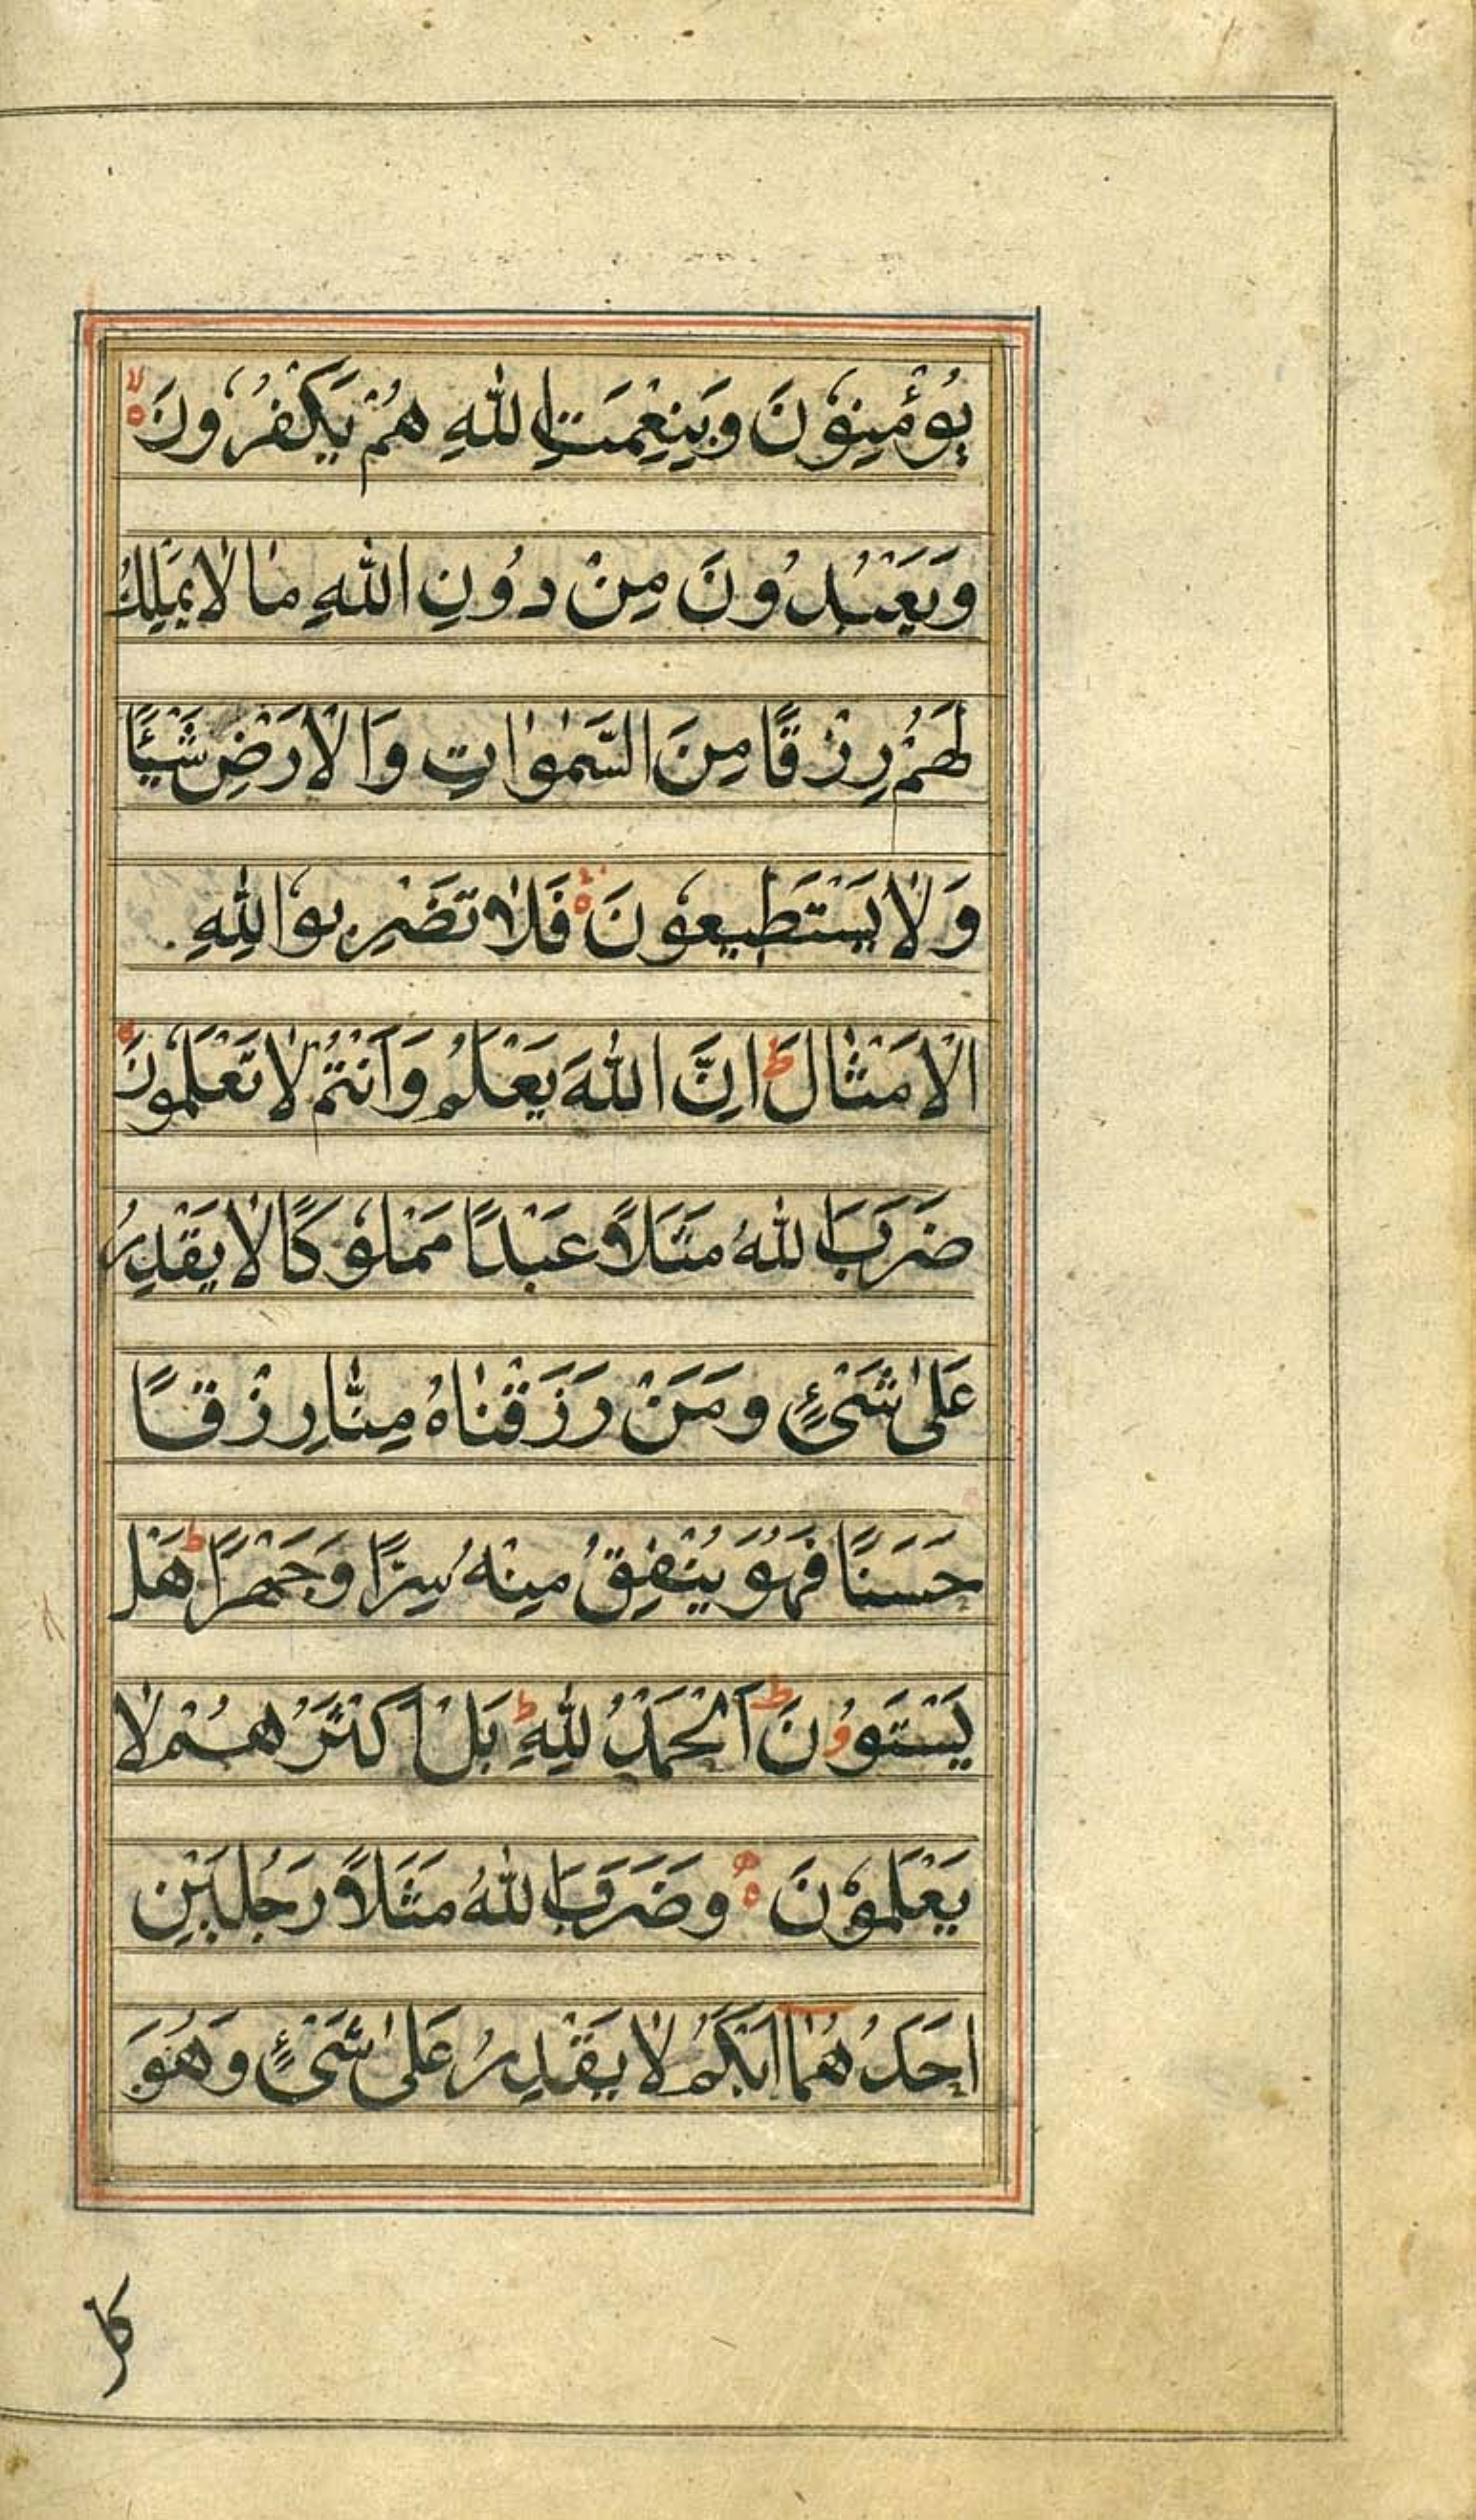 يُؤْمِنُوْنَ وَبِنِعْمَتِ اللّٰهِ هُمْ يَكْفُرُوْنَ ۙ
وَيَعْبُدُوْنَ مِنْ دُوْنِ اللّٰهِ مَا لَا يَمْلِكُ
لَهُمْ رِزْقًا مِنَ السَّمٰوٰاتِ وَالْاَرْضِ شَيْئًا
وَلَا يَسْتَطِيعُوْنَ ۚ فَلَا تَضْرِبُوْا لِلّٰهِ
الْاَمْثَالَ ؕ اِنَّ اللّٰهَ يَعْلَمُ وَاَنْتُمْ لَا تَعْلَمُوْنَ
ضَرَبَ اللّٰهُ مَثَلًا عَبْدًا مَمْلُوْكًا لَا يَقْدِرُ
عَلٰى شَيْءٍ وَمَنْ رَزَقْنَاهُ مِنَّا رِزْقًا
حَسَنًا فَهُوَ يُنْفِقُ مِنْهُ سِرًّا وَجَهْرًا ؕ هَلْ
يَسْتَوُوْنَ ؕ اَلْحَمْدُ لِلّٰهِ ؕ بَلْ اَكْثَرُهُمْ لَا
يَعْلَمُوْنَ وَضَرَبَ اللّٰهُ مَثَلًا رَجُلَيْنِ
اَحَدُهُمَا اَبْكَمُ لَا يَقْدِرُ عَلٰى شَيْءٍ وَهُوَ
كل